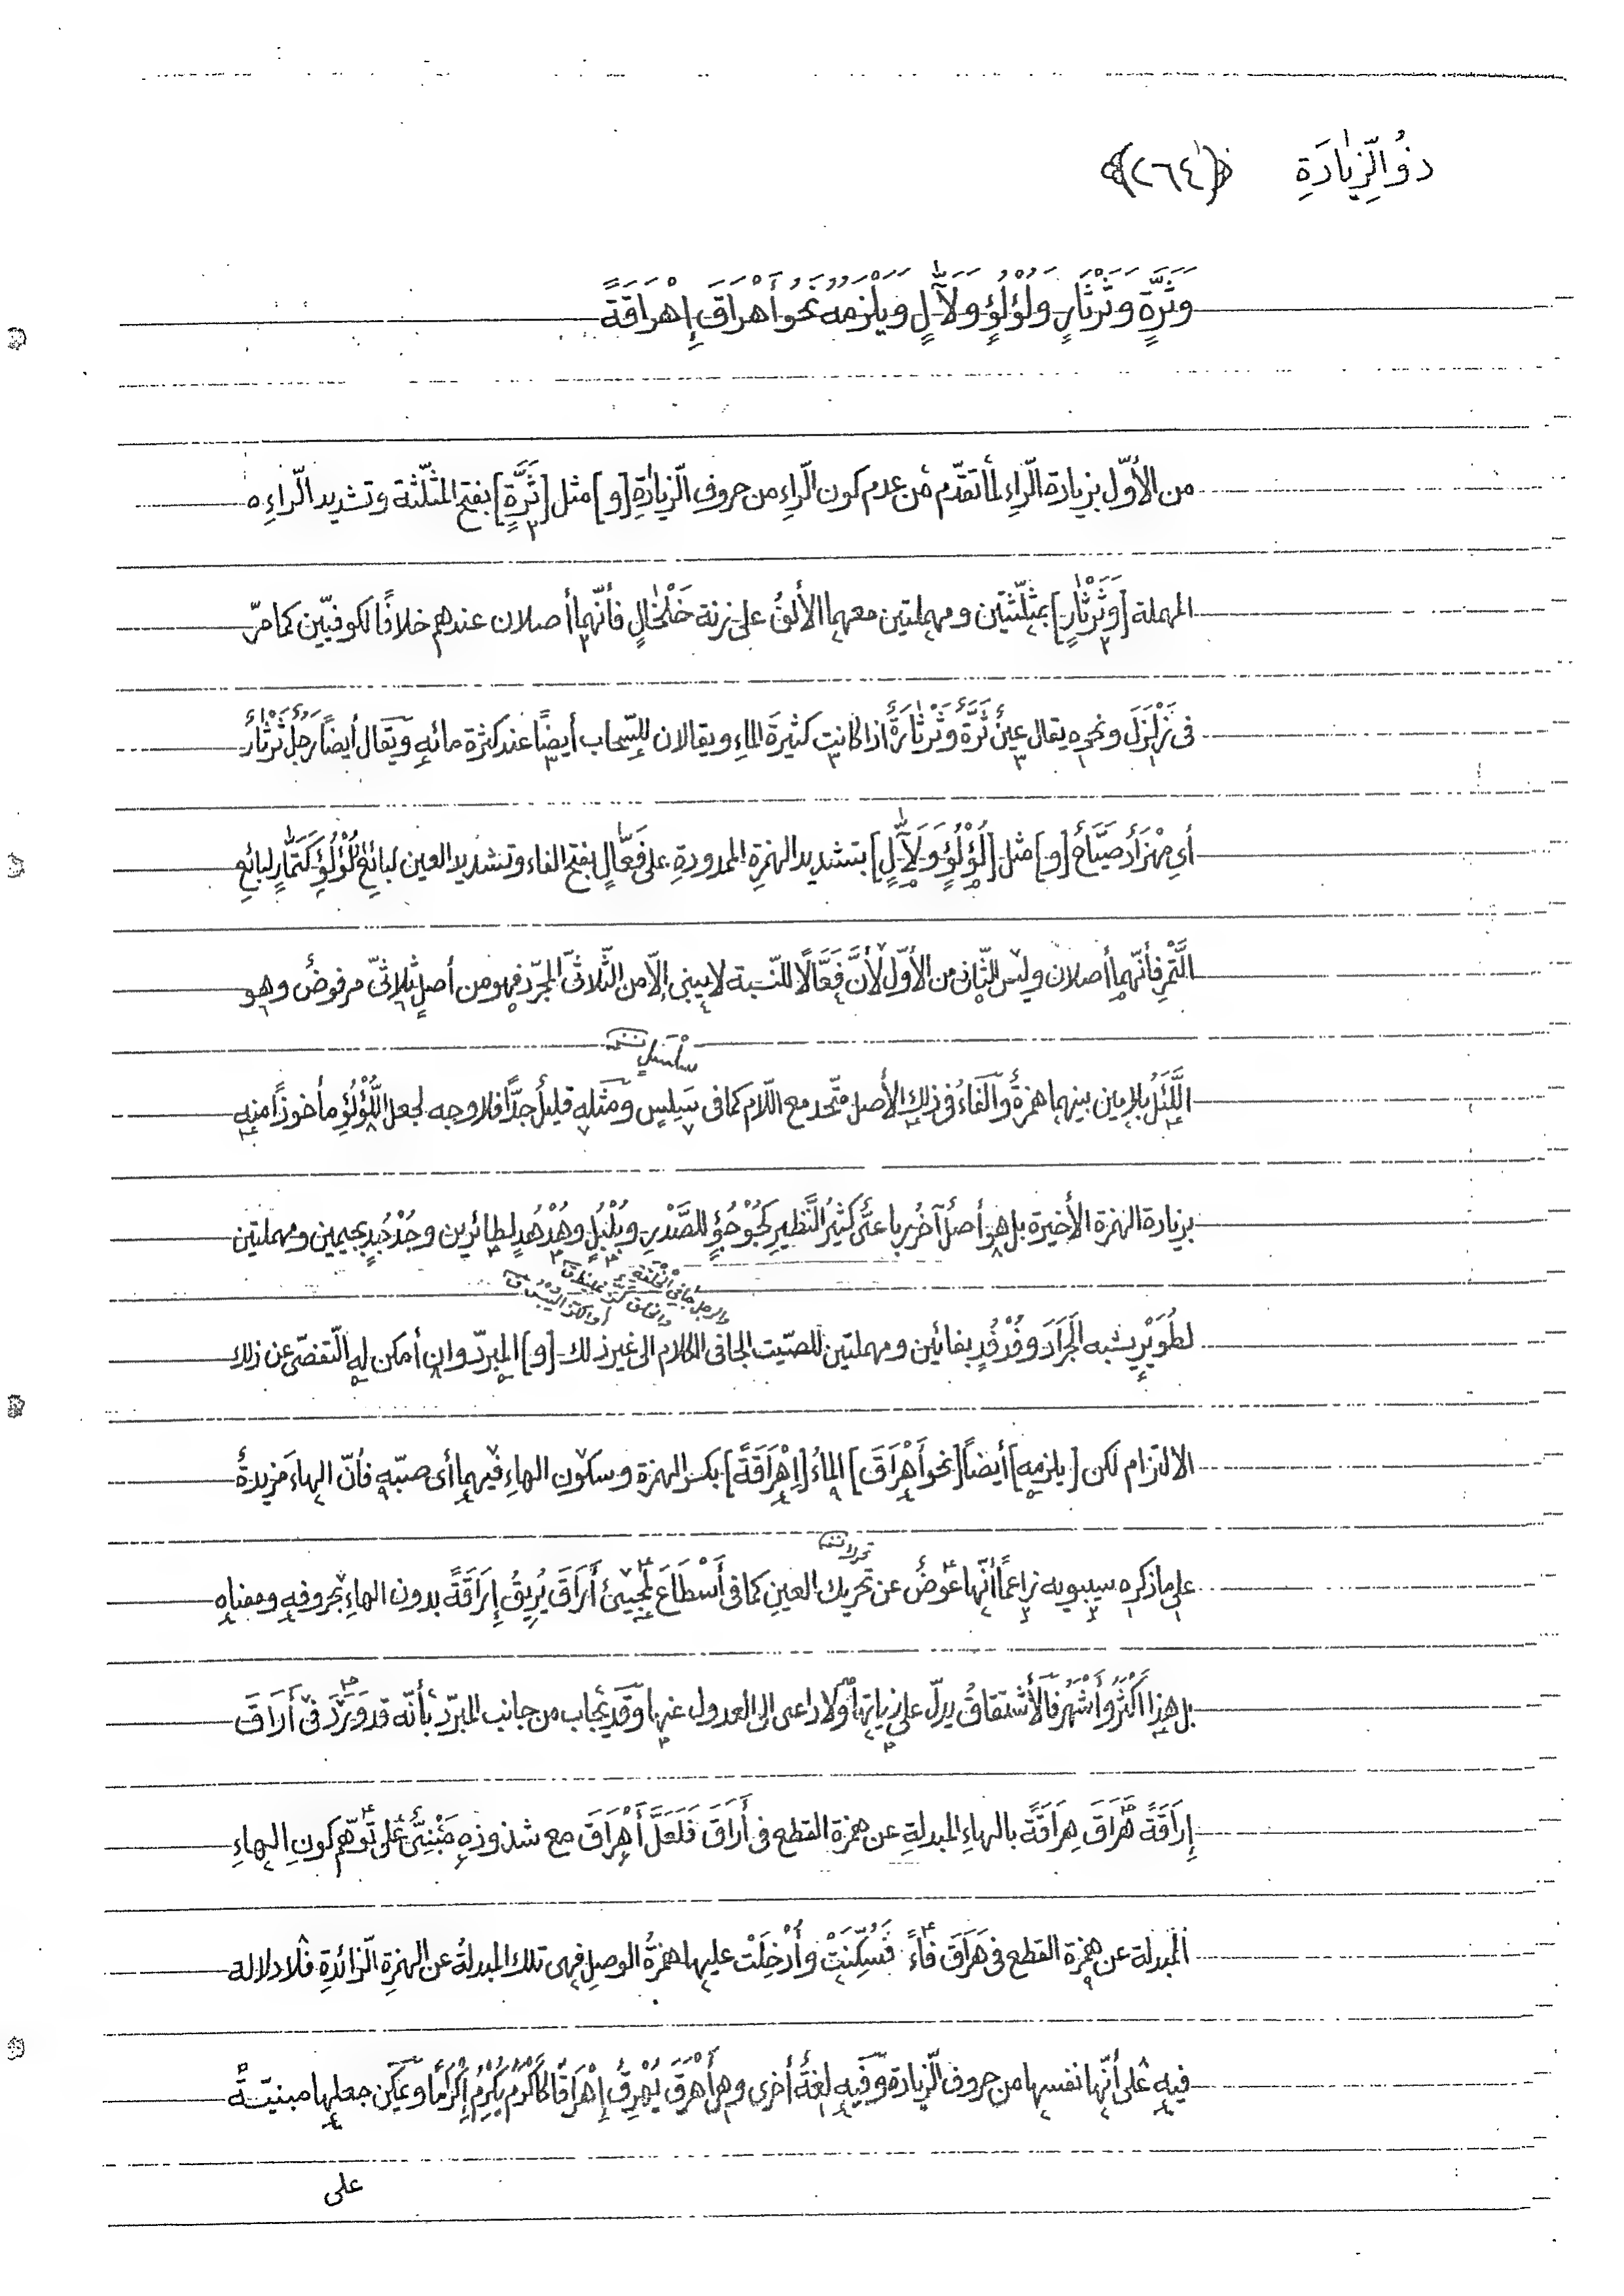 ذُو الزِّيَادَةِ ﴿٢٦٤﴾
وَثَرَّةٍ وَثَرْثَارٍ وَلُؤْلُؤٍ وَلَآَّلٍ وَيَلْزَمُهُ نَحْوُ أَهْرَاقَ إِهْرَاقَةً
من الأوّل بزيادة الرّاءِ لما تقدّم من عدم كون الرّاءِ من حروف الزّيادةِ [و] مثل [ثَرَّةٍ] بفتح المثلّثة وتشديد الرّاءِ
المهملة [وَثَرْثَارٍ] بمثلّثتين ومهملتين معهما الألفُ على زنة خَلْخَالٍ فأنّهما أصلان عندهم خلافًا لكوفيّين كما مرّ
فى زَلْزَلَ ونحوه يقال عينٌ ثَرَّةٌ وَثَرْثَارَةٌ اذا كانت كثيرةَ الماءِ ويقالان للسّحاب أيضًا عند كثرة مائهِ ويقال أيضًا رَجُلٌ ثَرْثَارٌ
أى مِهْزَارٌ صَيَّاحٌ [و] مثل [لُؤْلُؤٍ وَلَآَّلٍ] بتشديد الهمزةِ الممدودةِ على فَعَّالٍ بفتح الفاء وتشديد العين لبائع لُؤْلُؤٍ كَتَمَّارٍ لبائعِ
التَّمْرِ فأنّهما أصلان وليس الثّانى من الأوّل لأنَّ فَعَّالًا للنّسبة لا يبنى إلّا من الثّلاثىّ المجرّد فهو من أصلٍ ثلاثىّ مرفوضٌ وهو
سلسل نسخه
اللَّئَلُ بلامين بينهما همزةٌ والفاءُ فى ذلك الأصل متّحد مع اللّام كما فى سَلِسٍ ومثله قليلٌ جدًّا فلا وجه لجعل اللُّؤْلُؤِ مأخوذًا منه
بزيادة الهمزة الأخيرة بل هو أصلٌ آخرُ رباعىٌّ كثيرُ النَّظيرِ كَجُؤْجُؤٍ للصَّدْرِ وبُلْبُلٍ وهُدْهُدٍ لطائرين وجُدْجُدٍ بجيمين ومهملتين
لطُوَيْرٍ يشبه الجَرَادَ وفُدْفُدٍ بفائين ومهملتين للصّيّت الجافى الكلام الى غير ذلك [و] المبرّد وان أمكن له التّفصّى عن ذلك
الالتزام لكن [يلزمه] أيضًا [نحو أَهْرَاقَ] الماءَ [إِهْرَاقَةً] بكسر الهمزة وسكون الهاءِ فيهما أى صبّه فأنّ الهاءَ مزيدةٌ
تحرك نسخه
على ما ذكره سيبويه زاعمًا أنّها عوضٌ عن تحريك العين كما فى أَسْطَاعَ لمجيئ أَرَاقَ يُرِيقُ إِرَاقَةً بدون الهاءِ بحروفه ومعناه
بل هذا أكثرُ وأَشْهَرُ فالأشتقاقُ يدلّ على زيادتها ولا داعى الى العدول عنها وقد يجاب من جانب المبرّد بأنّه قد وَرَدَ فى أَرَاقَ
إِرَاقَةً هَرَاقَ هِرَاقَةً بالهاءِ المبدلةِ عن همزة القطع فى أَرَاقَ فلعلّ أَهْرَاقَ مع شذوذهِ مَبْنِىٌّ على توهّم كونِ الهاءِ
المبدلة عن همزة القطع فى هَرَاقَ فاءً فَسُكِّنَتْ وأُدْخِلَتْ عليها همزةُ الوصلِ فهى تلك المبدلةُ عن الهمزةِ الزّائدةِ فلا دلالة
فيه على أنّها نفسها من حروف الزّيادة وفيه لغةٌ أخرى وهى أَهْرَقَ يُهْرِقُ إِهْرَاقًا كأَكْرَمَ يُكْرِمُ إِكْرَامًا ويمكن جعلها مبنيّةً
على